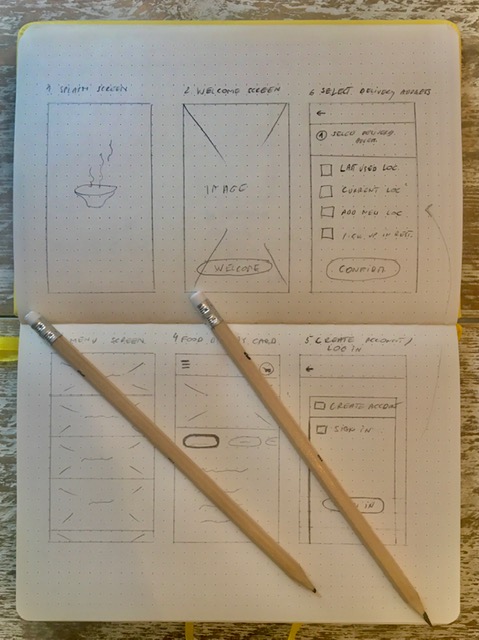 1 SPLASH SCREEN
2 WELCOME SCREEN
IMAGE
WELCOME
6 SELECT DELIVERY ADDRESS
←
SELECT DELIVERY
LAST USED LOC.
CURRENT LOC
ADD NEW LOC
PICK UP IN REST.
CONFIRM
MENU SCREEN
4 FOOD CARD
5 CREATE ACCOUNT/
LOG IN
←
CREATE ACCOUNT
SIGN IN
IN